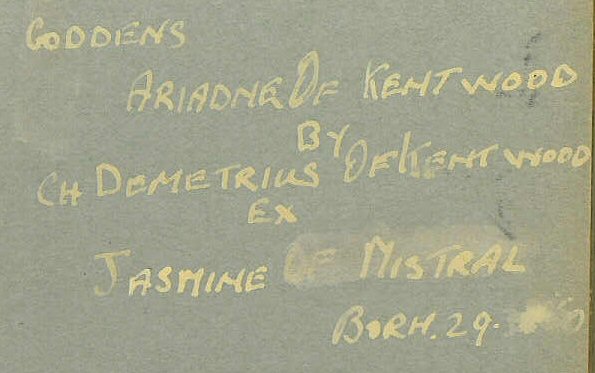 GODDENS
ARIADNE OF KENTWOOD
BY
CH DEMETRIUS OF KENTWOOD
EX
JASMINE OF MISTRAL
BORN. 29.